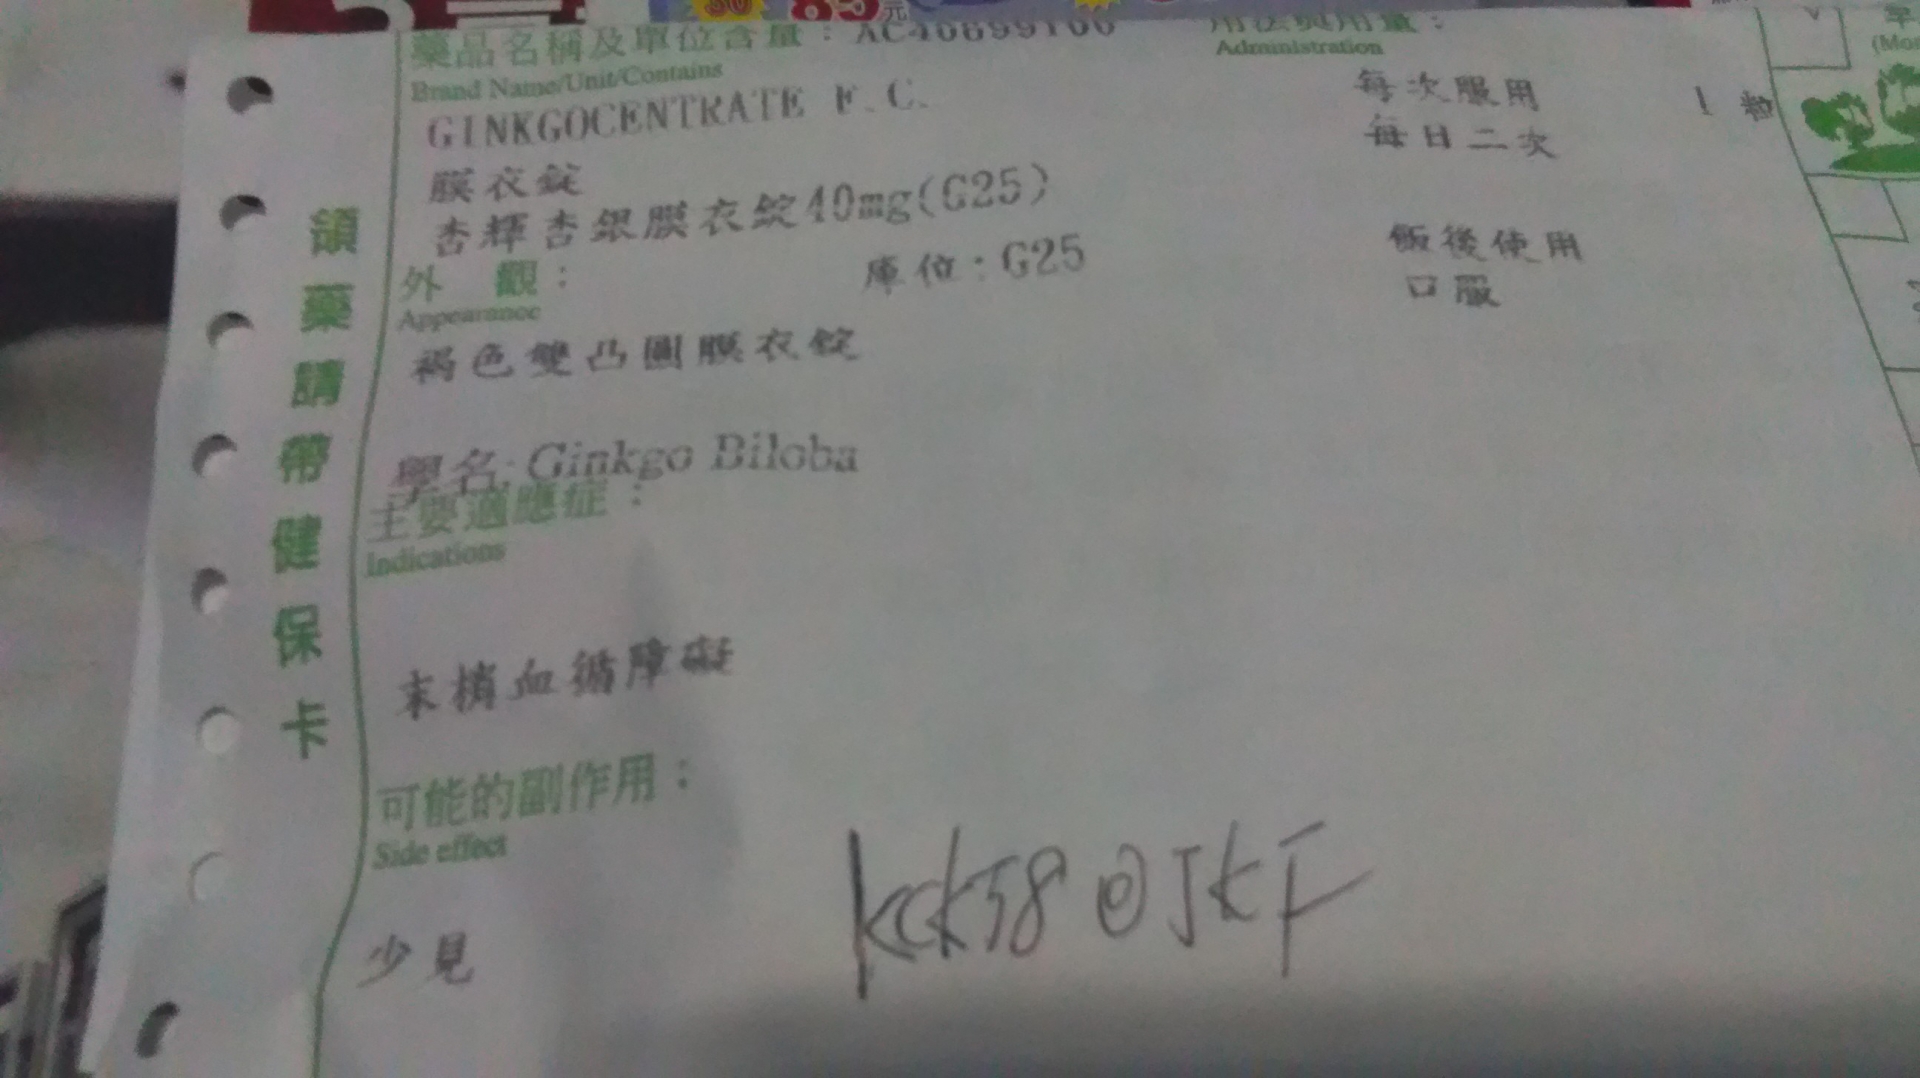 85元
藥品名稱及單位含量：AC40699100
Brand Name/Unit/Contains
GINKGOCENTRATE F.C.
膜衣錠
杏輝杏銀膜衣錠40mg(G25)
外 觀：
Appearance
庫位:G25
褐色雙凸圓膜衣錠
學名:Ginkgo Biloba
主要適應症：
Indications
末梢血循障礙
可能的副作用：
Side effect
少見
用法與用量：
Administration
每次服用 1
每日二次
飯後使用
口服
領藥請帶健保卡
kck58@JKF